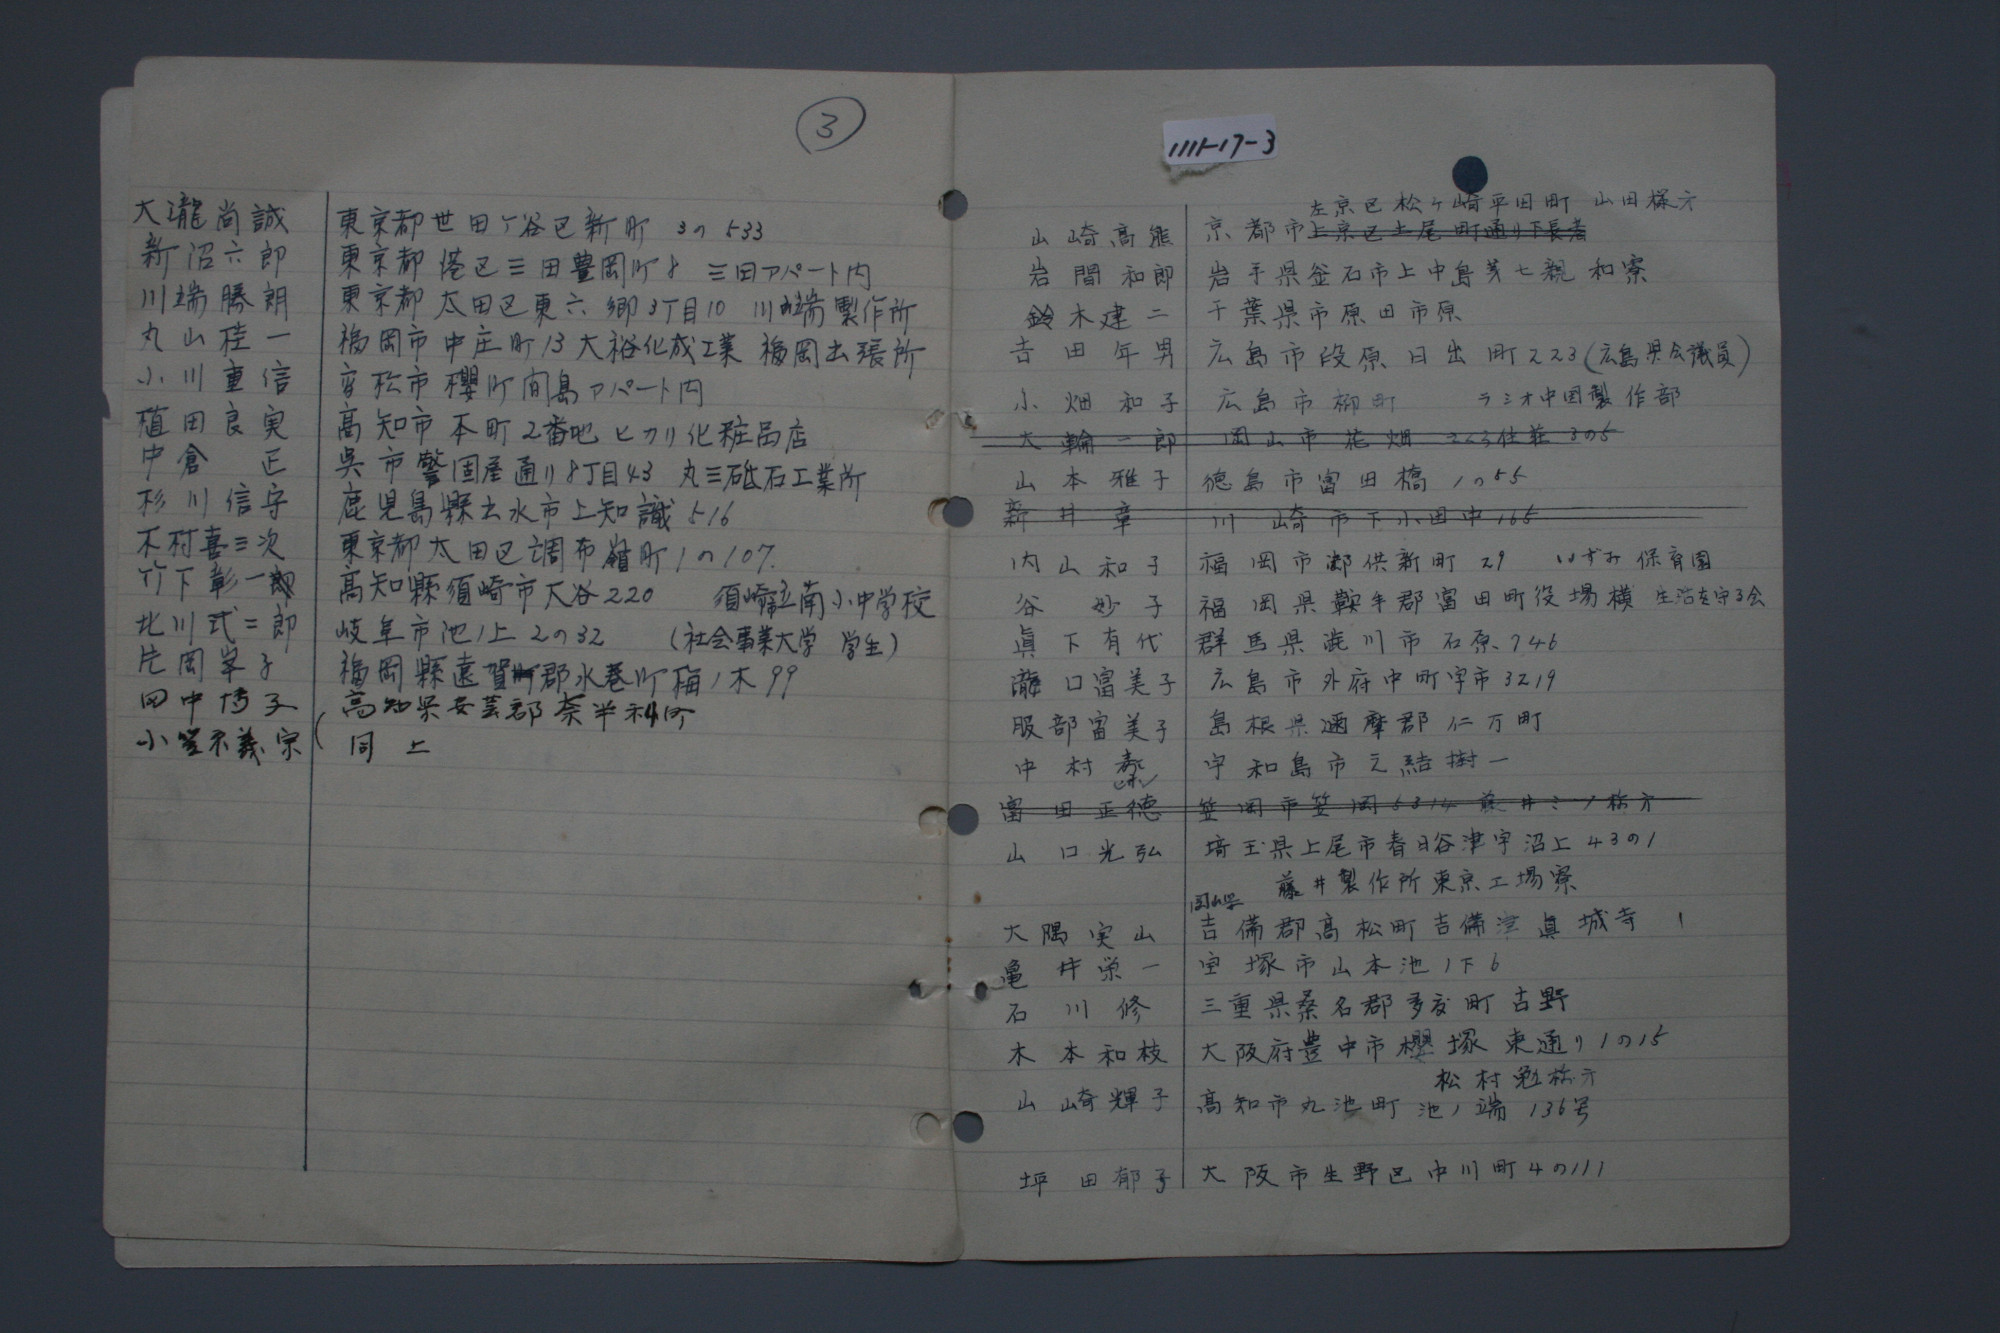 3
大瀧尚誠 東京都世田ヶ谷区新町 3の533
新沼六郎 東京都港区三田豊岡町8 三田アパート内
川端勝朗 東京都太田区東六郷3丁目10 川端製作所
丸山桂一 福岡市中庄町13 大裕化成工業 福岡出張所
小川重信 高松市櫻町間島アパート内
植田良実 高知市本町2番地 ヒカリ化粧品店
中倉正 呉市警固屋通り8丁目43 丸三砥石工業所
杉川信守 鹿児島縣出水市上知識516
木村喜三次 東京都太田区調布嶺町1の107.
竹下彰一郎 高知縣須崎市大谷220 須崎市立南小中学校
北川式二郎 岐阜市池ノ上2の32 (社会事業大学 学生)
片岡峯子 福岡縣遠賀郡水巻町梅ノ木99
田中博子 高知県安芸郡奈半利町
小笠原義宗 ( 同上
1111-17-3
左京区松ヶ崎平田町 山田様方
山崎高熊 京都市上京区土屋町通り下長者
岩間和郎 岩手県釜石市上中島第七親和寮
鈴木建二 千葉県市原田市原
吉田年男 広島市段原日出町223(広島県会議員)
小畑和子 広島市柳町 ラジオ中国製作部
大輪一郎 岡山市花畑 263住荘305
山本雅子 徳島市富田橋1の55
新井章 川崎市下小田中165
内山和子 福岡市那供新町29 いずみ保育園
谷妙子 福岡県鞍手郡富田町役場横 生活を守る会
眞下有代 群馬県渋川市石原746
瀧口富美子 広島市外府中町字市3219
服部富美子 島根県邇摩郡仁万町
中村泰 宇和島市元結掛一
富田正徳 笠岡市笠岡5314 藤井ミツノ様方
山口光弘 埼玉県上尾市春日谷津字沼上43の1
藤井製作所東京工場寮
岡山県
大隅実山 吉備郡高松町吉備津眞城寺
亀井栄一 宝塚市山本池ノ下6
石川修 三重県桑名郡多度町古野
木本和枝 大阪府豊中市櫻塚東通り1の15
松村勉様方
山崎輝子 高知市丸池町池ノ端136号
坪田郁子 大阪市生野区中川町4の111